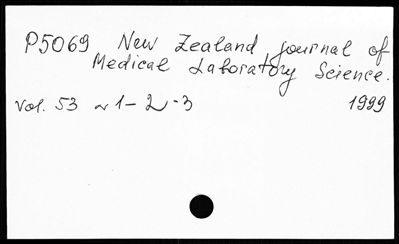 P5069 New Zealand Journal of
Medical Laboratory Science.
Vol. 53 n 1-2-3 1999